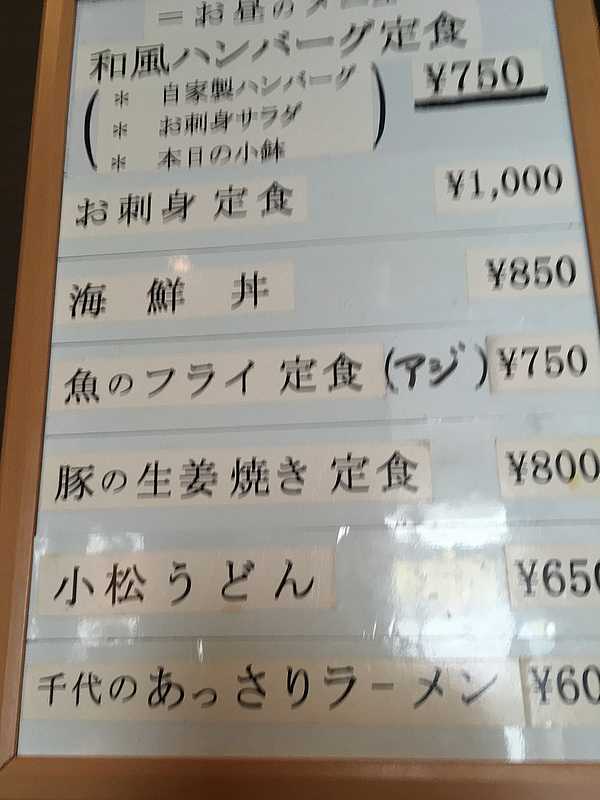 =お昼のメニュー
和風ハンバーグ定食 ¥750
(* 自家製ハンバーグ
* お刺身サラダ
* 本日の小鉢)
お刺身 定食 ¥1,000
海鮮丼 ¥850
魚のフライ 定食 (アジ) ¥750
豚の生姜焼き 定食 ¥800
小松うどん ¥650
千代のあっさりラーメン ¥60